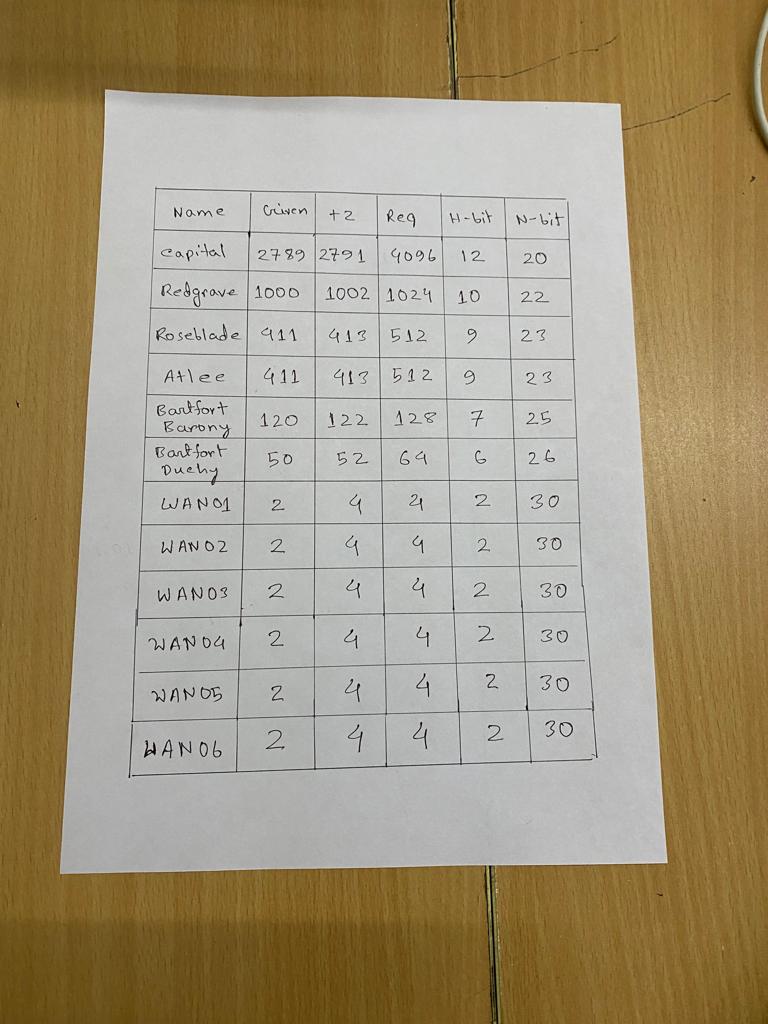 Name Given +2 Req H-bit N-bit
Capital 2789 2791 4096 12 20
Redgrave 1000 1002 1024 10 22
Roseblade 411 413 512 9 23
Atlee 411 413 512 9 23
Bartfort
Barony 120 122 128 7 25
Bartfort
Duchy 50 52 64 6 26
WAN01 2 4 4 2 30
WAN02 2 4 4 2 30
WAN03 2 4 4 2 30
WAN04 2 4 4 2 30
WAN05 2 4 4 2 30
WAN06 2 4 4 2 30